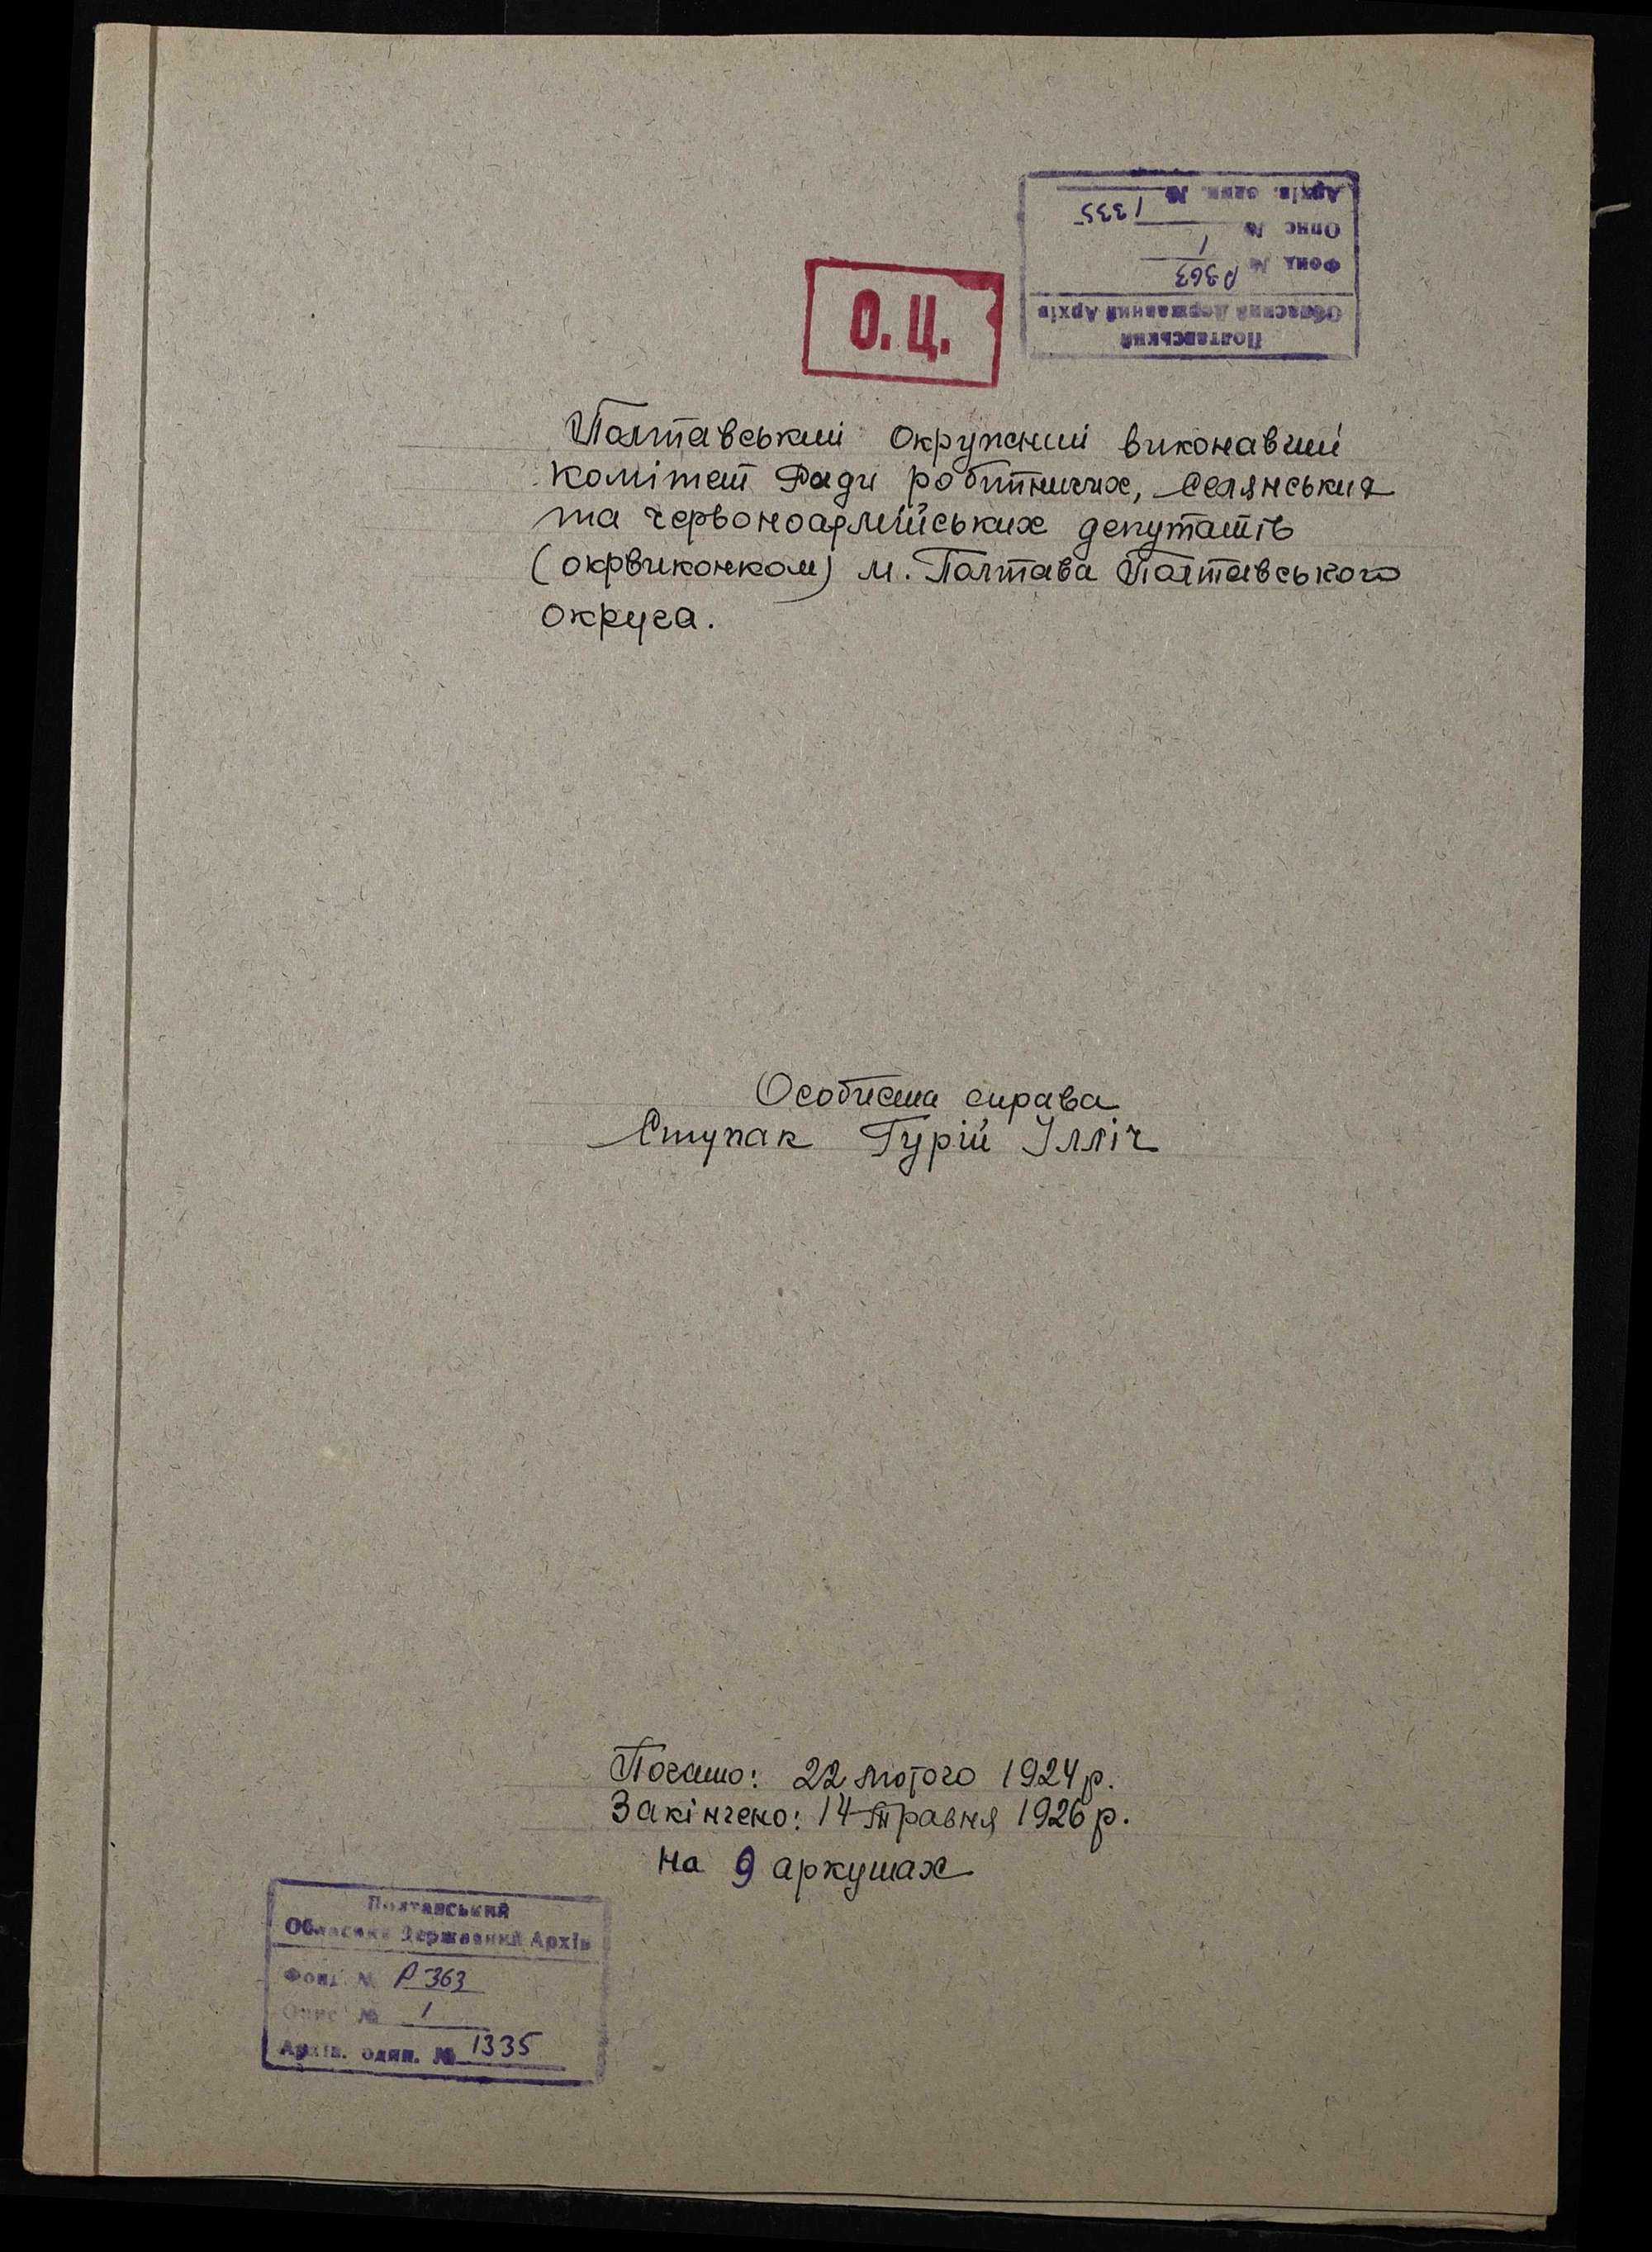 Полтавський
Обласний Державний Архів
Фонд № Р363
Опис № 1
Архів. один. № 1335
О. Ц.
Полтавський Окружний виконавчий
комітет Ради робітничих, Селянських
та червоноармійських депутатів
(окрвиконком) м. Полтава Полтавського
округа.
Особиста справа
Ступак Гурій Ілліч
Почато: 22 лютого 1924 р.
Закінчено: 14 травня 1926 р.
на 9 аркушах
Полтавський
Обласний Державний Архів
Фонд № Р 363
Опис № 1
Архів. один. № 1335